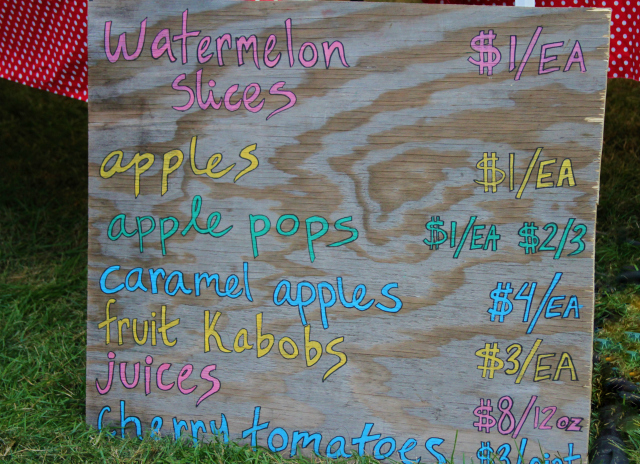 Watermelon $1/EA
slices
apples $1/EA
apple pops $1/EA $2/3
caramel apples $4/EA
fruit Kabobs $3/EA
juices $8/12oz
cherry tomatoes $3/pint